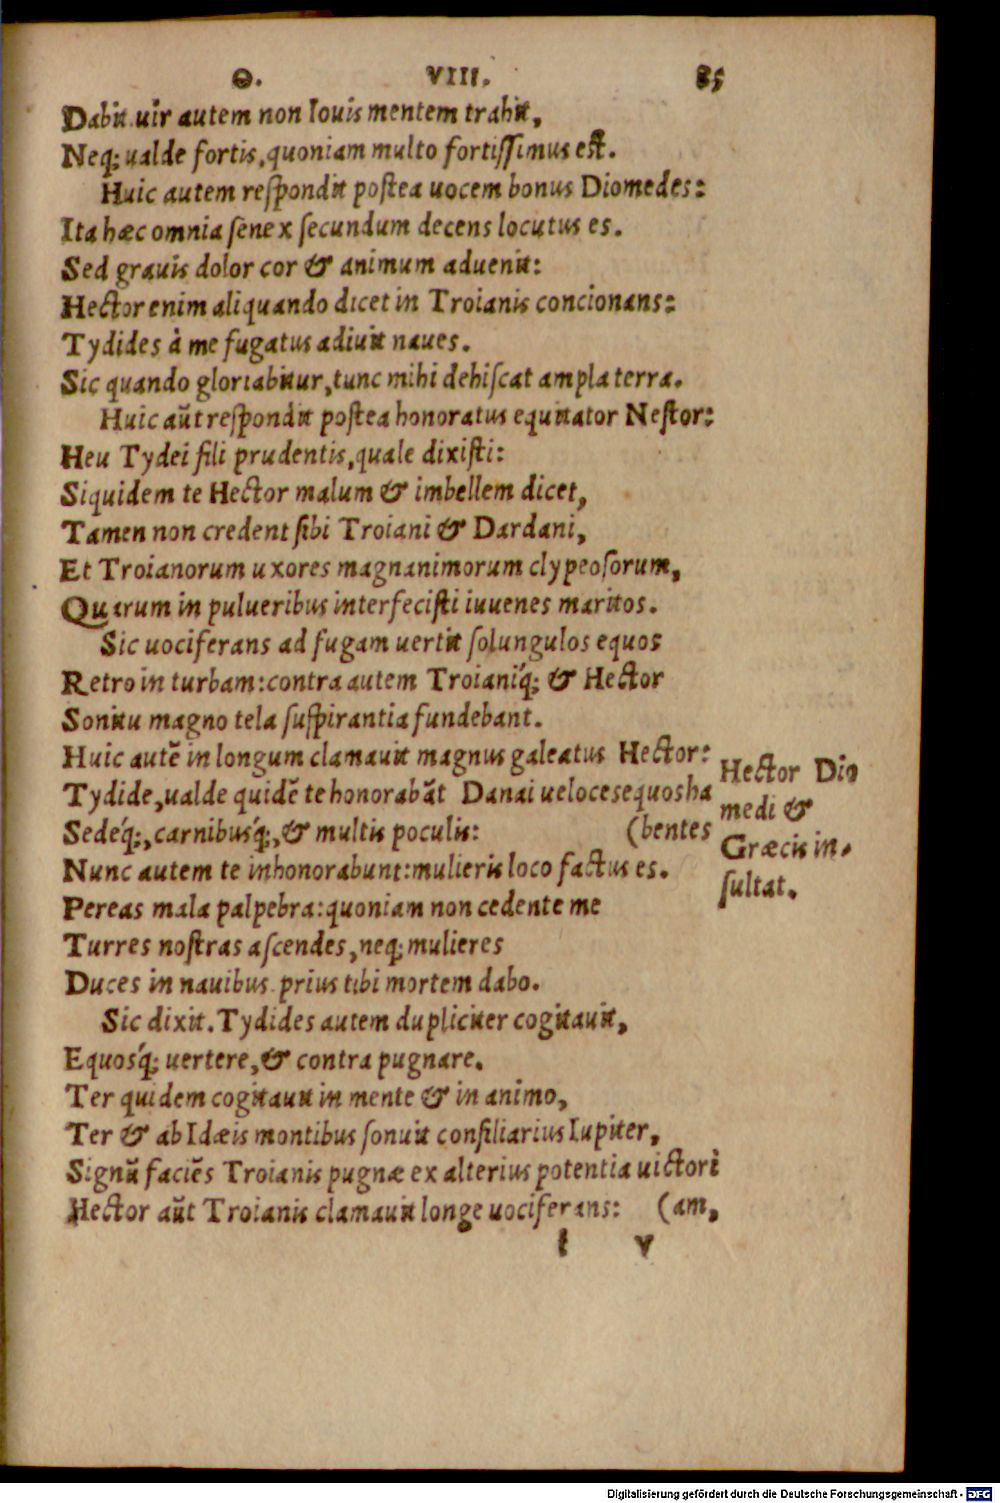 Θ. VIII. 85
Dabit. uir autem non Iouis mentem trahit,
Neq; ualde fortis, quoniam multo fortissimus est.
Huic autem respondit postea uocem bonus Diomedes:
Ita hæc omnia senex secundum decens locutus es.
Sed grauis dolor cor & animum aduenit:
Hector enim aliquando dicet in Troianis concionans:
Tydides à me fugatus adiuit naues.
Sic quando gloriabitur, tunc mihi dehiscat ampla terra.
Huic aūt respondit postea honoratus equitator Nestor:
Heu Tydei fili prudentis, quale dixisti:
Siquidem te Hector malum & imbellem dicet,
Tamen non credent sibi Troiani & Dardani,
Et Troianorum uxores magnanimorum clypeosorum,
Quarum in pulueribus interfecisti iuuenes maritos.
Sic uociferans ad fugam uertit solungulos equos
Retro in turbam: contra autem Troianiq́; & Hector
Sonitu magno tela suspirantia fundebant.
Huic autē in longum clamauit magnus galeatus Hector:
Tydide, ualde quidē te honorabāt Danai ueloces equos ha
Sedeq́;, carnibusq́;, & multis poculis: (bentes
Nunc autem te inhonorabunt: mulieris loco factus es.
Pereas mala palpebra: quoniam non cedente me
Turres nostras ascendes, neq; mulieres
Duces in nauibus. prius tibi mortem dabo.
Sic dixit. Tydides autem dupliciter cogitauit,
Equosq́; uertere, & contra pugnare.
Ter quidem cogitauit in mente & in animo,
Ter & ab Idæis montibus sonuit consiliarius Iupiter,
Signū faciēs Troianis pugnæ ex alterius potentia uictori
Hector aūt Troianis clamauit longe uociferans: (am,
l v
Hector Dio
medi &
Græcis in-
sultat.
Digitalisierung gefördert durch die Deutsche Forschungsgemeinschaft - DFG